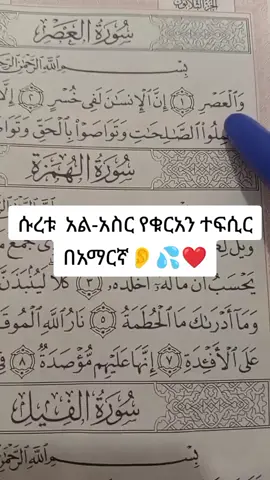 الجزء الثلاثون
سُورَةُ العَصْرِ
بِسْمِ اللَّهِ الرَّحْمَٰنِ الرَّحِيمِ
وَالْعَصْرِ ١ إِنَّ الْإِنسَانَ لَفِي خُسْرٍ ٢ إِلَّا
الصَّالِحَاتِ وَتَوَاصَوْا بِالْحَقِّ وَتَوَاصَ
سُورَةُ الهُمَزَةِ
ሱረቱ አል-አስር የቁርአን ተፍሲር
በአማርኛ👂💦❤️
يَحْسَبُ أَنَّ مَالَهُ أَخْلَدَهُ ٣ كَلَّا لَيُنبَذَنَّ
وَمَا أَدْرَاكَ مَا الْحُطَمَةُ ٥ نَارُ اللَّهِ الْمُوقَ
عَلَى الْأَفْئِدَةِ ٧ إِنَّهَا عَلَيْهِم مُّؤْصَدَةٌ ٨
سُورَةُ الفِيلِ
بِسْمِ اللَّهِ الرَّحْمَٰنِ